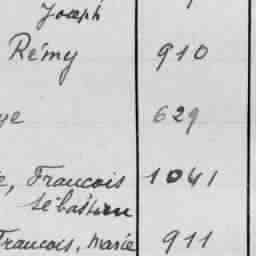 Joseph
Rémy 910
ye 629
e, Francois 1041
Sébastien
Francois, Marie 911